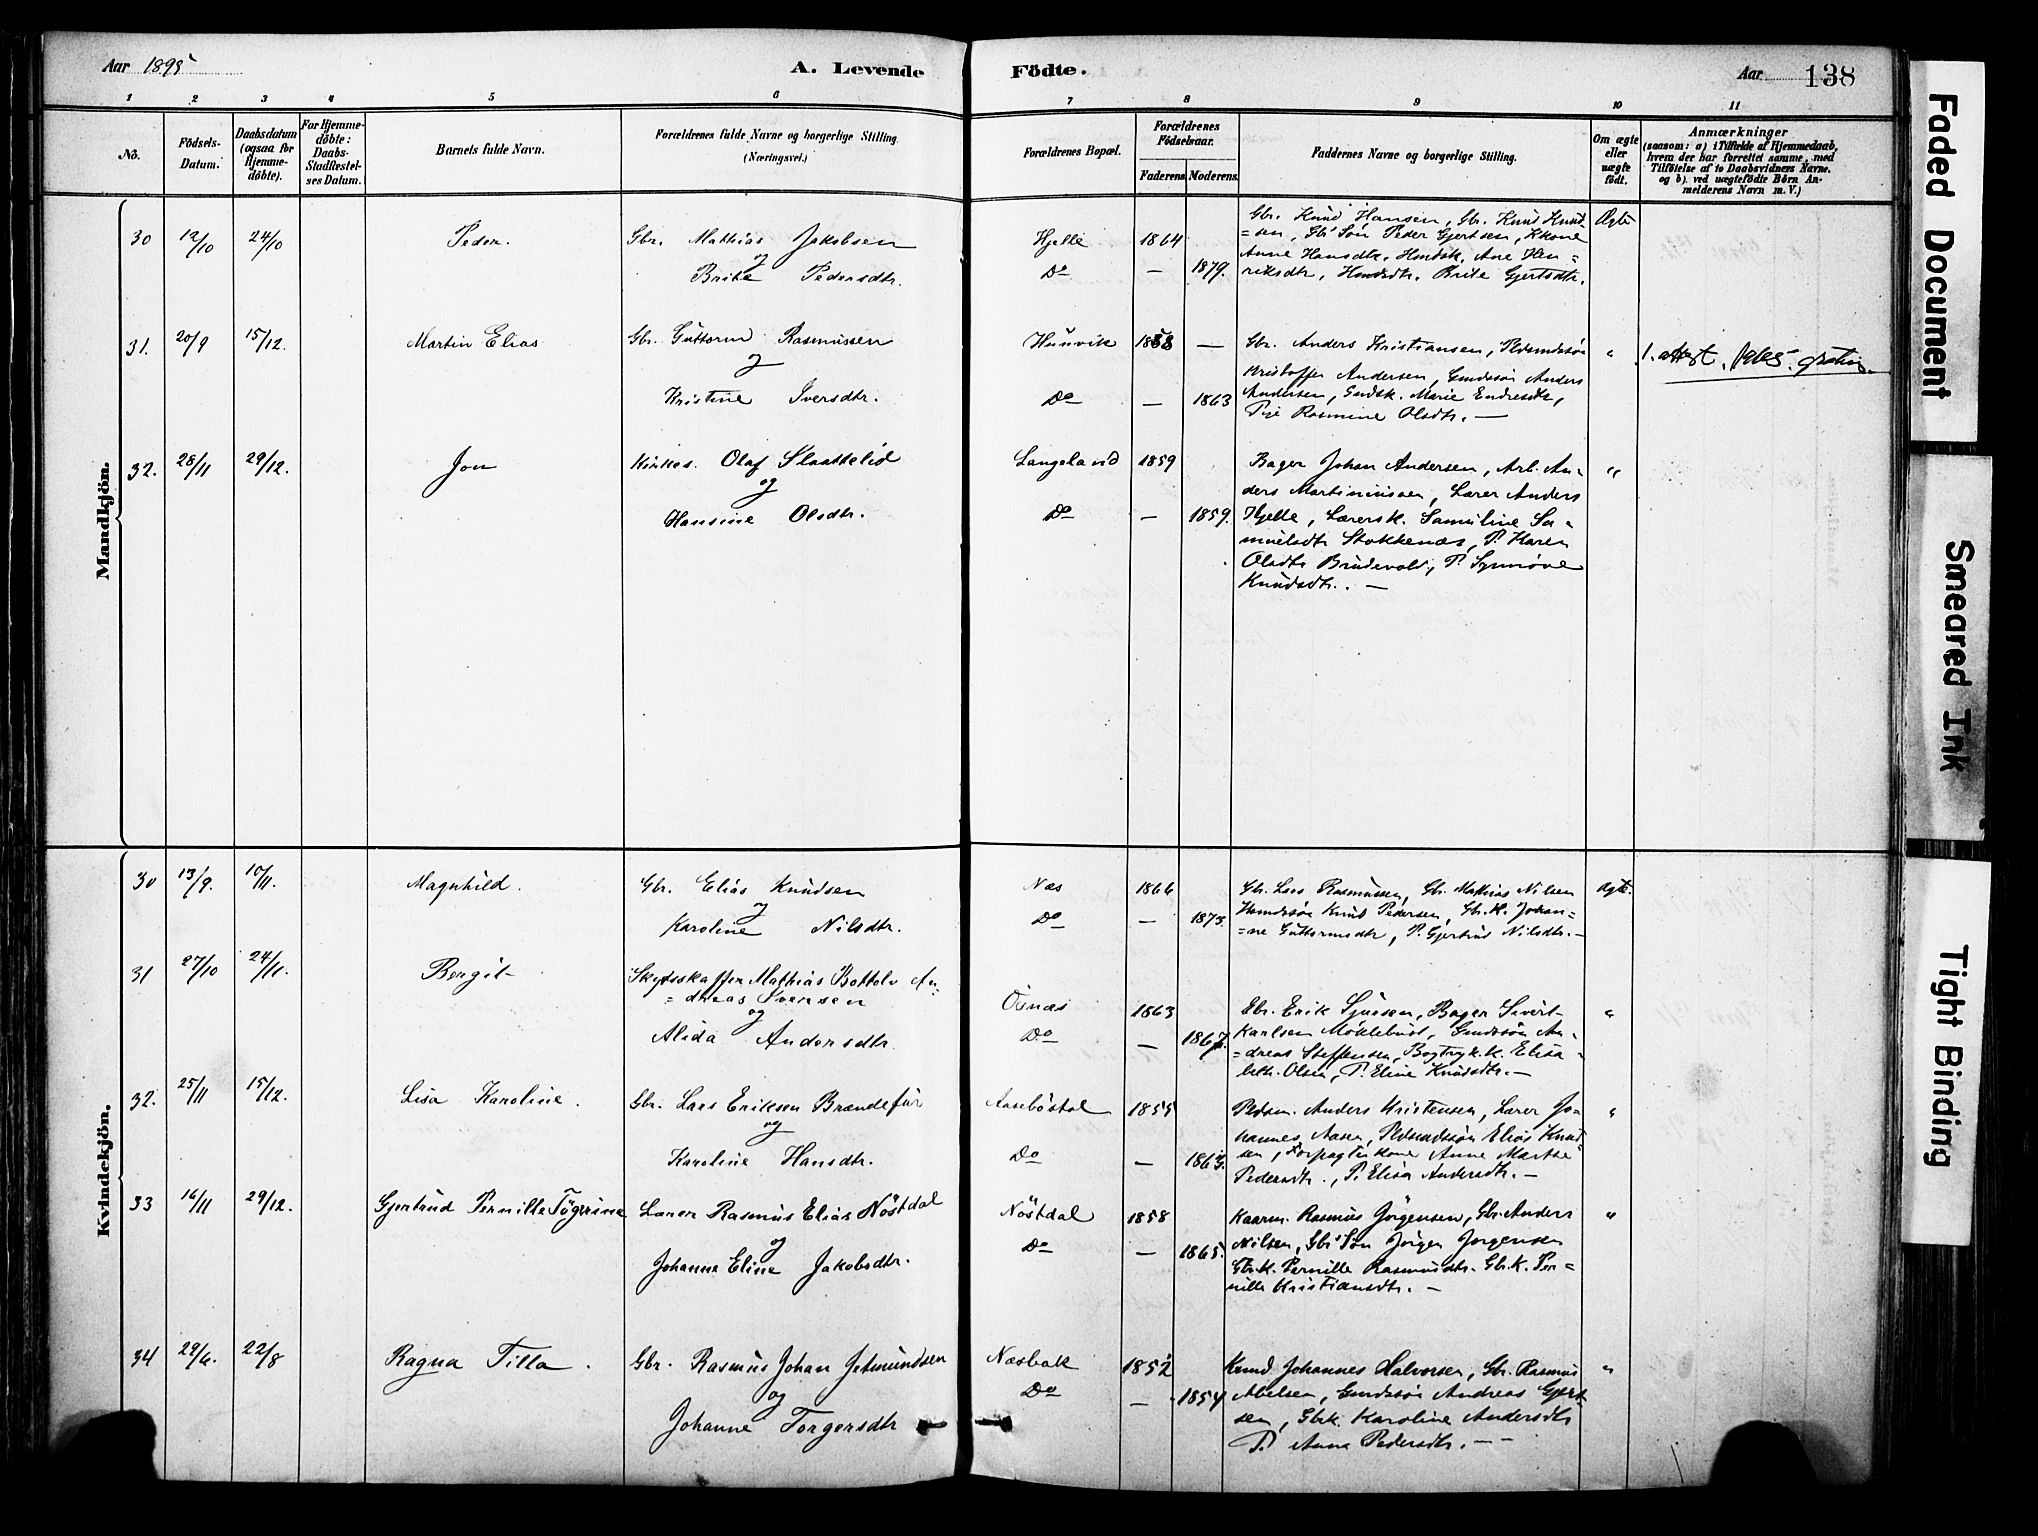 Aar 1895
A. Levende
Födte.
Aar 138
1 2 3 4 5 6 7 8 9 10 11
No.
Födsels-Datum.
Daabsdatum (ogsaa for Hjemmedöbte).
For Hjemmedöbte: Daabs-Stadfæstelses Datum.
Barnets fulde Navn.
Forældrenes fulde Navne og borgerlige Stilling. (Næringsvei.)
Forældrenes Bopæl.
Forældrenes Födselsaar.
Faderens. Moderens.
Faddernes Navne og borgerlige Stilling.
Om ægte eller uægte födt.
Anmærkninger
(saasom: a) i Tilfælde af Hjemmedaab, hvem der har forrettet samme, med Tilföielse af to Daabsvidners Navne. og b) ved uægtefödte Börn Anmelderens Navn m. V.)
Mandkjön.
30 12/10 24/10 Peder. Gbr. Mathias Jakobsen
og
Brite Pedersdtr.
Hjelle 1864
Do — 1879.
Gbr. Knud Hansen, Gbr. Knud Knud-
=sen, Gb. Søn Peder Gjertsen, Kkone
Anne Hansdtr. Hmdsk. Ane Hen=
riksdtr, Hmdsdtr. Brite Gjertsdtr.
Ægte
31. 20/9 15/12. Martin Elias Gbr. Guttorm Rasmussen
og
Kristine Iversdtr.
Hunvik 1858 —
Do — 1863
Gbr. Anders Kristiansen, Pldsmdssøn
Kristoffer Andersen, Gmdssøn Anders
Andersen, Gmdsk. Marie Endresdtr,
Pige Rasmine Olsdtr. —
"
1. attest
32. 28/11 29/12. Jon Kirkes. Olaf Slaattelid
og
Hansine Olsdtr.
Langelavid 1859
Do — 1859.
Bager Johan Andersen, Arb. An-
ders Martinussen, Lærer Anders
Hjelle, Lærersk. Samuline Sa-
muelsdtr Stokkenæs, P. Karen
Olsdtr Brudevold, P. Synnøve
Knudsdtr. —
"
Kvindekjön.
30 13/9. 10/11. Magnhild. Gbr. Elias Knudsen
og
Karoline Nilsdtr.
Næs 1866
Do — 1873.
Gbr. Lars Rasmussen, Gbr. Mathias Nilsen
Hsmdssøn Knud Pedersen, Gbr.K. Johan=
=ne Guttormsdtr, P. Gjertrud Nilsdtr. —
Ægte.
31 27/10 24/11. Bergit Skydsskaffer Mathias Bottolv An-
=dreas Iversen
og
Alida Andersdtr.
Osnæs 1863
Do — 1867.
Gbr. Erik Sjursen, Bager Sivert
Karlsen Möklebust, Gmdssøn An-
=dreas Steffensen, Bogtryk.k. Elisa-
beth Olsen, P. Eline Knudsdtr. —
"
32. 25/11 15/12. Lisa Karoline. Gbr. Lars Eriksen Brændefur
og
Karoline Hansdtr.
Aasebøstøl 1855
Do — 1863.
Pldsm. Anders Kristensen, Lærer Jo-
hannes Aasen, Pldsmdssøn Elias Knud-
sen, Forpagterkone Anne Marthe
Pedersdtr., P. Elisa Andersdtr. —
"
33 16/11 29/12. Gjertrud Pernille Tögerine Lærer Rasmus Elias Nöstdal
og
Johanne Eline Jakobsdtr.
Nöstdal 1858
Do — 1865.
Kaarm. Rasmus Jörgensen, Gbr. Anders
Nilsen, Gbr' Søn Jörgen Jorgensen
Gbr.K. Pernille Rasmusdtr. Gbr.K. Per=
nille Kristiansdtr. —
"
34 29/6. 22/8 Ragna Tilla. Gbr. Rasmus Johan Jetmundsen
og
Johanne Torgersdtr
Næsbak 1852
Do — 1854
Kmd. Johannes Halvorsen, Gbr. Rasmus
Abelsen, Gmdssøn Andreas Gjert-
sen, Gbrk. Karoline Andersdtr
P. Anna Pedersdtr. —
"
Faded Document
Smeared Ink
Tight Binding